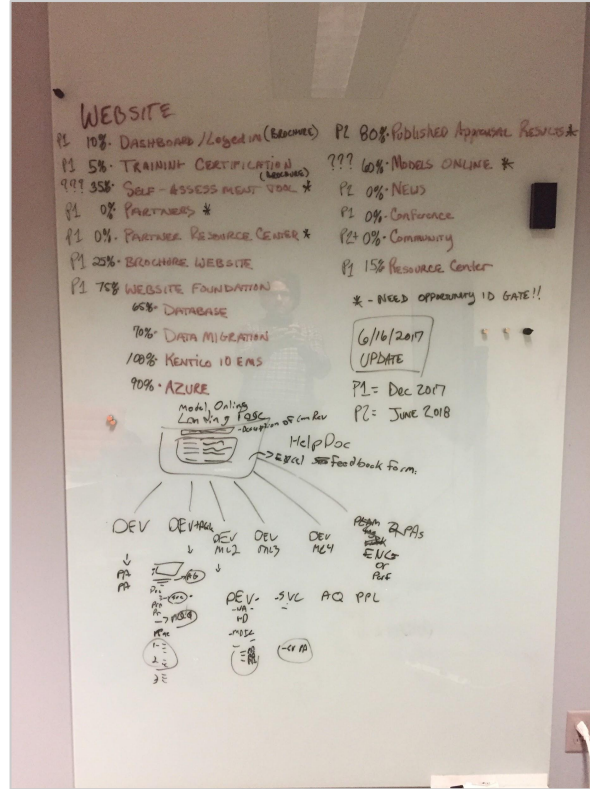 WEBSITE
P1 10% · DASHBOARD / Logged in (BROCHURE)
P1 5% · TRAINING CERTIFICATION (BROCHURE)
??? 35% · SELF-ASSESSMENT TOOL *
P1 0% · PARTNERS *
P1 0% · PARTNER RESOURCE CENTER *
P1 25% · BROCHURE WEBSITE
P1 75% WEBSITE FOUNDATION
65% · DATABASE
70% · DATA MIGRATION
100% · KENTICO 10 EMS
90% · AZURE
P2 80% · Published Appraisal Results *
??? 60% · MODELS ONLINE *
P1 0% · NEWS
P1 0% · Conference
P2+ 0% · Community
P1 15% Resource Center
* - NEED OPPORTUNITY ID GATE!!
6/16/2017
UPDATE
P1 = Dec 2017
P2 = JUNE 2018
Model Online
Landing Page
HelpDoc
Excel Feedback Form
DEV
DEV+Agile
DEV ML2
DEV ML3
DEV ML4
PAs
ENG
or
Perf
PA
PA
DEV - SVC AQ PPL